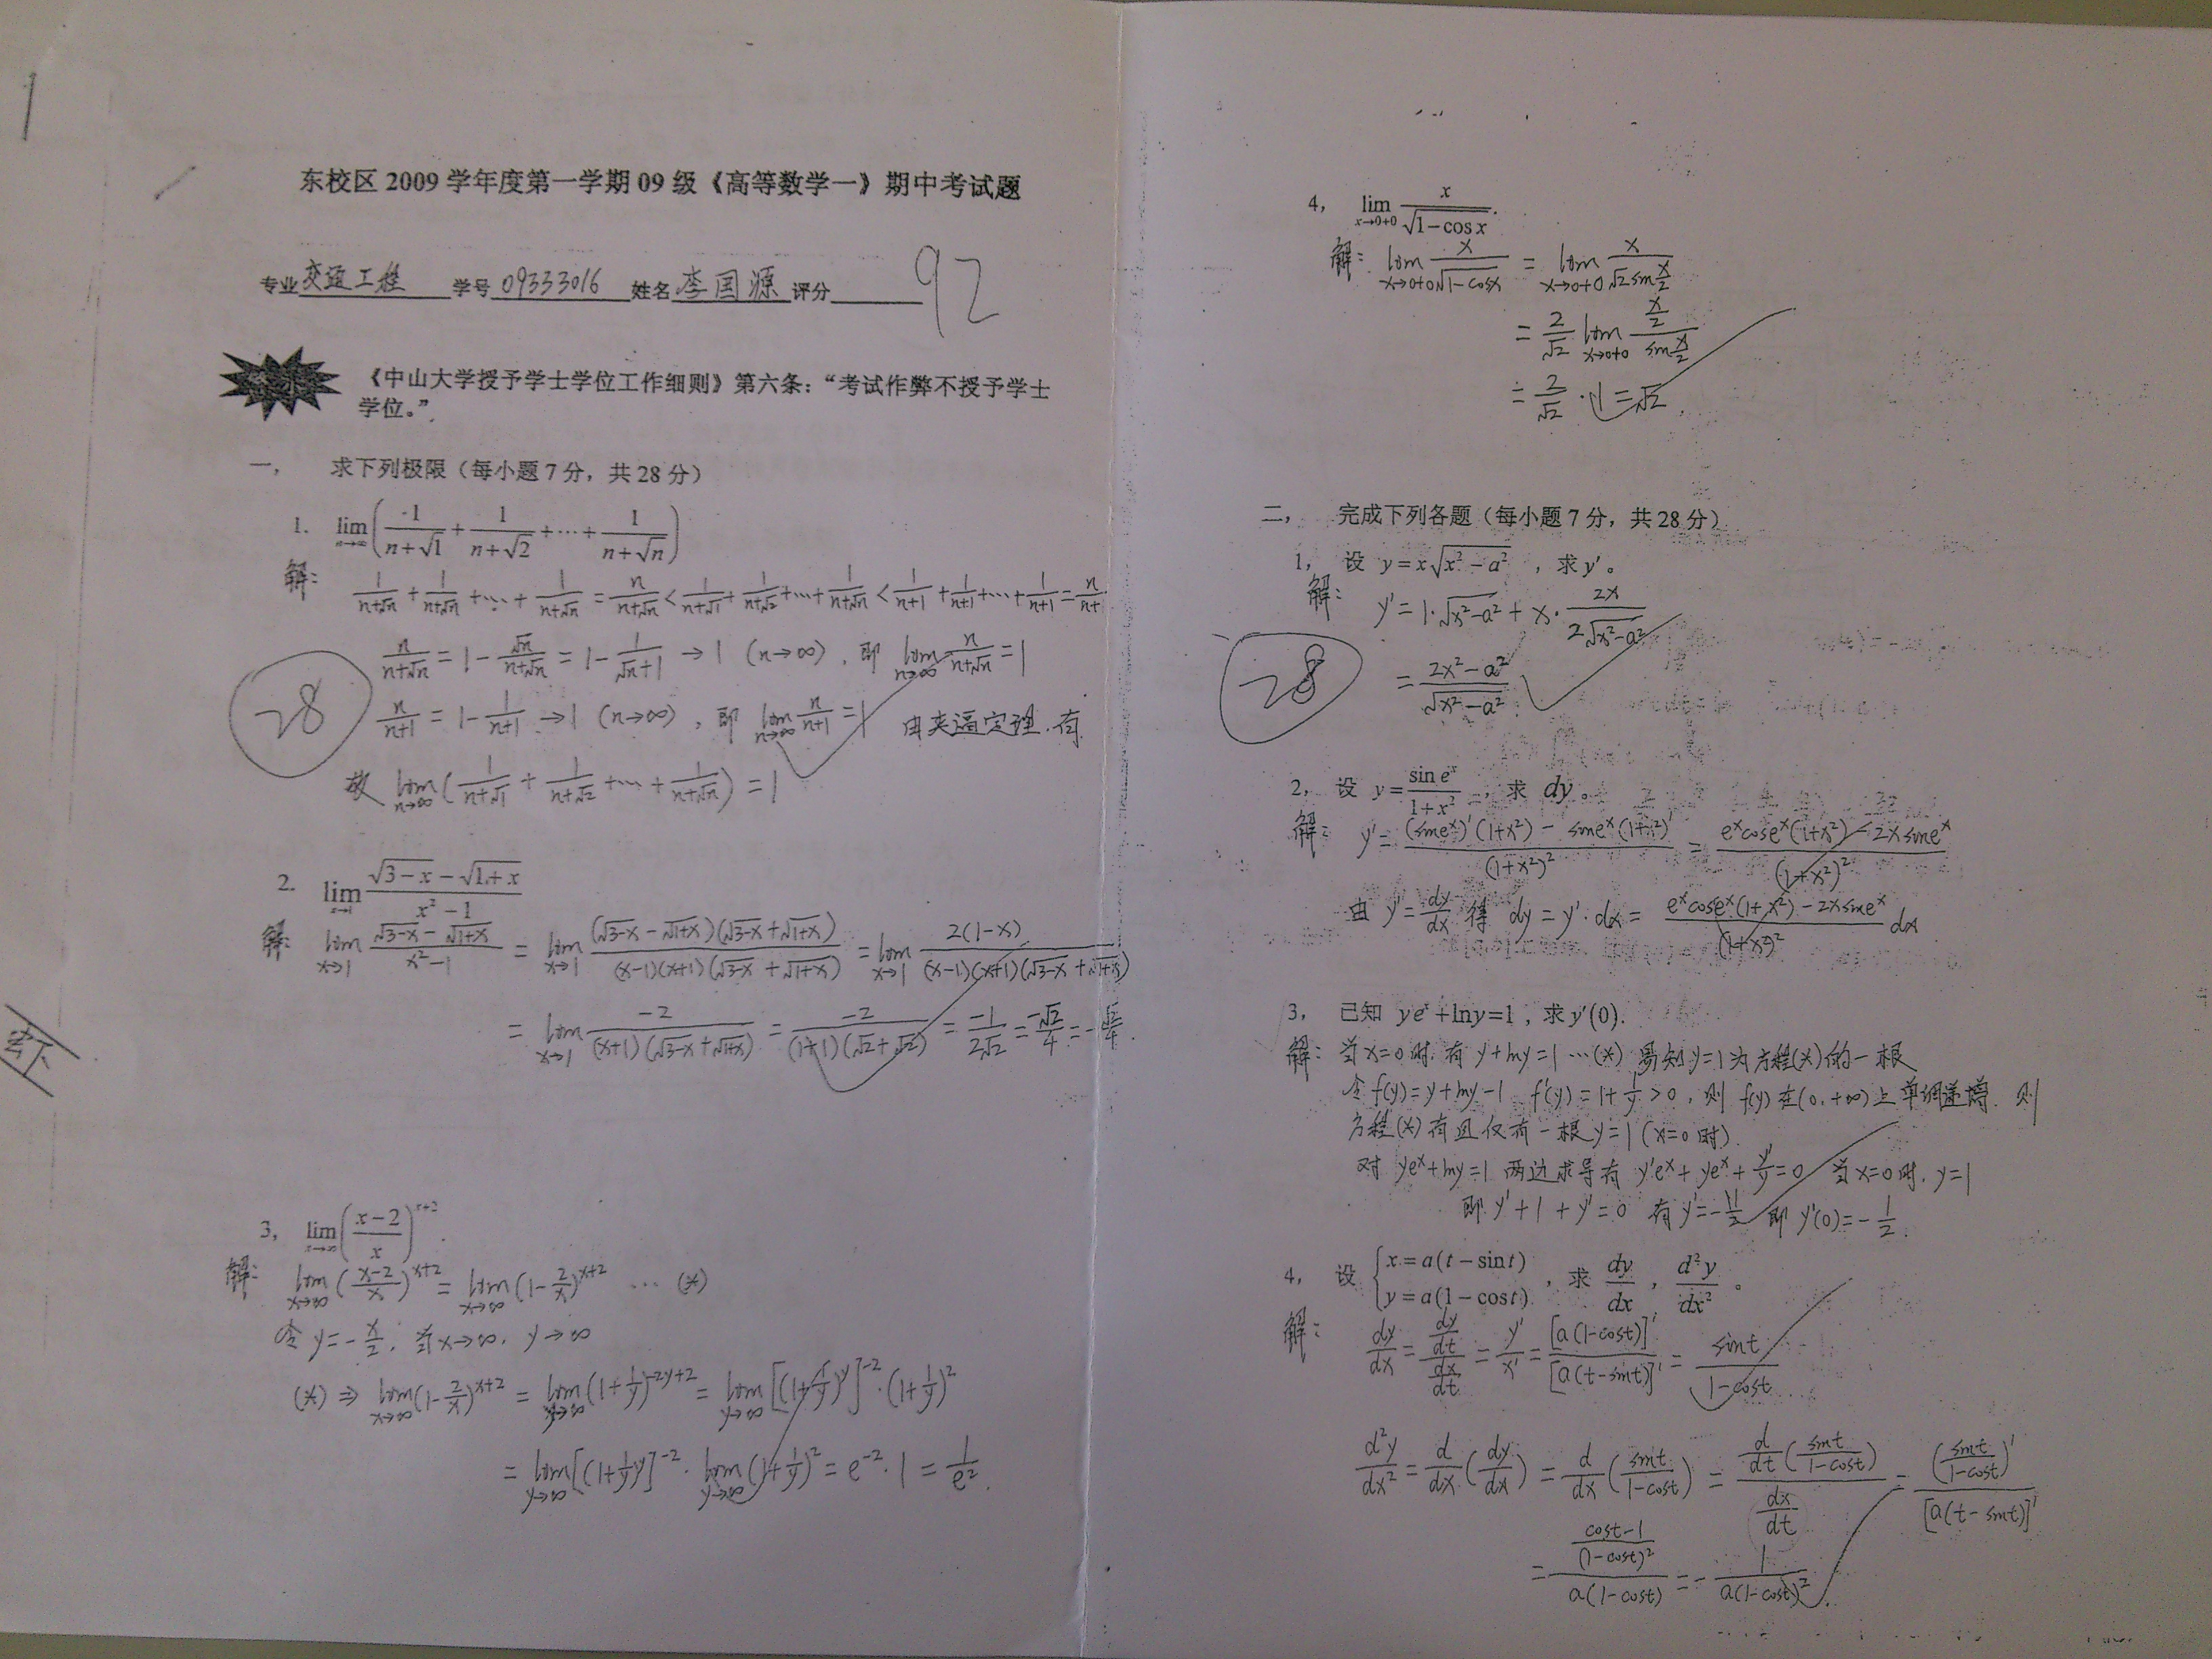 东校区 2009 学年度第一学期 09 级《高等数学一》期中考试题
专业 交通工程 学号 09333016 姓名 李国源 评分 92
《中山大学授予学士学位工作细则》第六条：“考试作弊不授予学士
学位。”
一， 求下列极限（每小题 7 分，共 28 分）
1. lim_{n→∞} (1/(n+√1) + 1/(n+√2) + ⋯ + 1/(n+√n))
解: 1/(n+√n) + 1/(n+√n) + ⋯ + 1/(n+√n) = n/(n+√n) < 1/(n+√1) + 1/(n+√2) + ⋯ + 1/(n+√n) < 1/(n+1) + 1/(n+1) + ⋯ + 1/(n+1) = n/(n+
n/(n+√n) = 1 - √n/(n+√n) = 1 - 1/(√n+1) → 1 (n→∞), 即 lim_{n→∞} n/(n+√n) = 1
28
n/(n+1) = 1 - 1/(n+1) → 1 (n→∞), 即 lim_{n→∞} n/(n+1) = 1 由夹逼定理.有
故 lim_{n→∞} (1/(n+√1) + 1/(n+√2) + ⋯ + 1/(n+√n)) = 1
2. lim_{x→1} (√(3-x) - √(1+x))/(x²-1)
解: lim_{x→1} (√(3-x) - √(1+x))/(x²-1) = lim_{x→1} (√(3-x) - √(1+x))(√(3-x) + √(1+x))/((x-1)(x+1)(√(3-x) + √(1+x))) = lim_{x→1} 2(1-x)/((x-1)(x+1)(√(3-x) + √(1+x)))
= lim_{x→1} -2/((x+1)(√(3-x) + √(1+x))) = -2/((1+1)(√2+√2)) = -1/(2√2) = -√2/4 = -√2/4.
3， lim_{x→∞} ((x-2)/x)^{x+2}.
解: lim_{x→∞} ((x-2)/x)^{x+2} = lim_{x→∞} (1-2/x)^{x+2} ⋯ (*)
令 y = -x/2, 当 x→∞, y→∞
(*) ⇒ lim_{x→∞} (1-2/x)^{x+2} = lim_{y→∞} (1+1/y)^{-2y+2} = lim_{y→∞} [(1+1/y)^y]^{-2} · (1+1/y)²
= lim_{y→∞} [(1+1/y)^y]^{-2} · lim_{y→∞} (1+1/y)² = e^{-2} · 1 = 1/e².
4， lim_{x→0+0} x/√(1-cos x).
解: lim_{x→0+0} x/√(1-cosx) = lim_{x→0+0} x/(√2 sin(x/2))
= 2/√2 lim_{x→0+0} (x/2)/(sin(x/2))
= 2/√2 · 1 = √2.
二， 完成下列各题（每小题 7 分，共 28 分）
1， 设 y = x√(x²-a²) ，求 y′。
解: y′ = 1·√(x²-a²) + x · 2x/(2√(x²-a²))
28
= (2x²-a²)/√(x²-a²).
2， 设 y = sin e^x/(1+x²) ，求 dy。
解: y′ = ((sine^x)′(1+x²) - sine^x(1+x²)′)/(1+x²)² = (e^x cose^x(1+x²) - 2xsine^x)/(1+x²)²
由 y′ = dy/dx 得 dy = y′·dx = (e^x cose^x(1+x²) - 2xsine^x)/(1+x²)² dx
3， 已知 ye^x + ln y = 1 ，求 y′(0).
解: 当 x=0 时. 有 y+lny=1 ⋯(*) 易知 y=1 为方程(*)的一根
令 f(y)=y+lny-1 f′(y)=1+1/y>0, 则 f(y) 在(0,+∞)上单调递增. 则
方程(*)有且仅有一根 y=1 (x=0时).
对 ye^x+lny=1 两边求导有 y′e^x+ye^x+y′/y=0 当 x=0 时. y=1
即 y′+1+y′=0 有 y′=-1/2 即 y′(0)=-1/2.
4， 设 {x = a(t - sin t) y = a(1 - cos t) ，求 dy/dx ， d²y/dx² 。
解: dy/dx = (dy/dt)/(dx/dt) = y′/x′ = [a(1-cost)]′/[a(t-sint)]′ = sint/(1-cost)
d²y/dx² = d/dx (dy/dx) = d/dx (sint/(1-cost)) = (d/dt (sint/(1-cost)))/(dx/dt) = (sint/(1-cost))′/[a(t-sint)]′
= ((cost-1)/(1-cost)²)/(a(1-cost)) = -1/(a(1-cost)²).